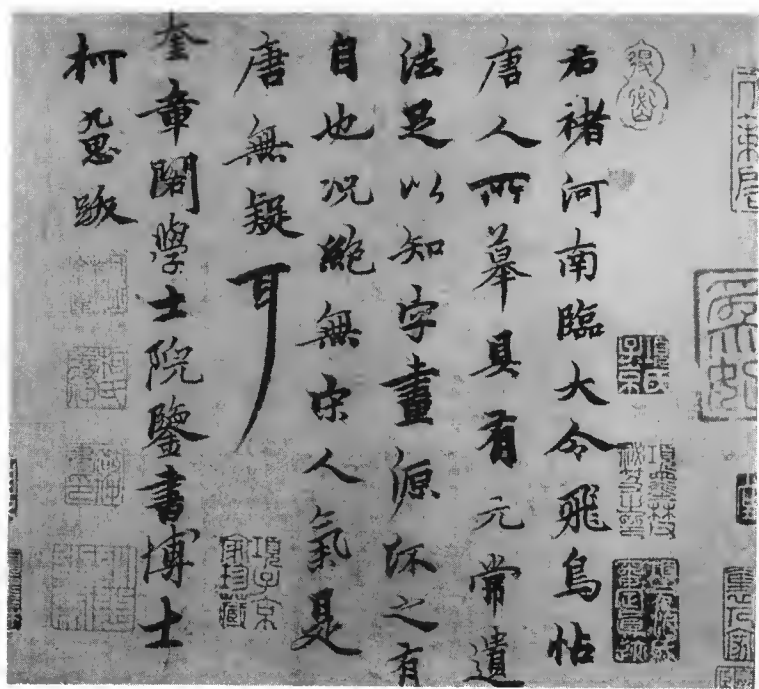 右褚河南臨大令飛鳥帖
唐人所摹具有元常遺
法足以知字畫源流之有
自也况絶無宋人氣是
唐無疑耳
奎章閣學士院鑒書博士
柯九思跋
項子京
家珍藏
項氏
子京